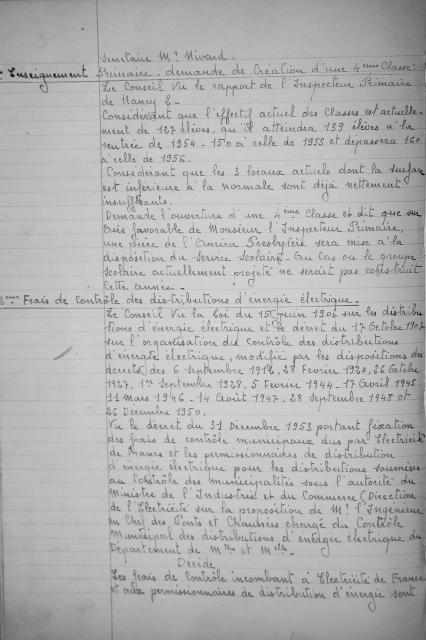 Secrétaire Mr Nivard.
Enseignement Primaire - demande de Création d'une 4ème Classe.
Le Conseil Vu le rapport de l'Inspecteur Primaire
de Nancy 2 -
Considérant que l'effectif actuel des Classes est actuelle-
ment de 127 élèves, qu'il atteindra 139 élèves à la
rentrée de 1954 - 150 à celle de 1955 et dépassera 160
à celle de 1956.
Considérant que les 3 locaux actuels dont la surface
est inférieure à la normale sont déjà nettement
insuffisants.
Demande l'ouverture d'une 4ème Classe et dit que sur
avis favorable de Monsieur l'Inspecteur Primaire,
une pièce de l'Ancien Presbytère sera mise à la
disposition du Service Scolaire. Au Cas ou le groupe
scolaire actuellement projeté ne serait pas construit
cette année.
Frais de Contrôle des distributions d'énergie électrique.
Le Conseil Vu la Loi du 15 Juin 1906 sur les distribu-
tions d'énergie électrique et le décret du 17 Octobre 1907
sur l'organisation du Contrôle des distributions
d'énergie électrique, modifié par les dispositions des
décrets des 6 septembre 1912, 28 Fevrier 1920, 26 Octobre
1927, 1er Septembre 1928. 5 Fevrier 1944 - 17 Avril 1945
11 Mars 1946 - 14 Août 1947 - 28 septembre 1948 et
26 Decembre 1950.
Vu le décret du 31 Décembre 1953 portant fixation
des frais de contrôle municipaux dus par Electricité
de France et les permissionnaires de distribution
d'énergie électrique pour les distributions soumises
au Contrôle des municipalités sous l'autorité du
Ministre de l'Industrie et du Commerce (Direction
de l'Electricité sur la proposition de Mr l'Ingénieur
en Chef des Ponts et Chaussées chargé du Contrôle
Municipal des distributions d'énergie électrique du
Département de Mthe et Mlle.
Décide
Les frais de Contrôle incombant à Electricité de France
et aux permissionnaires de distribution d'énergie sont